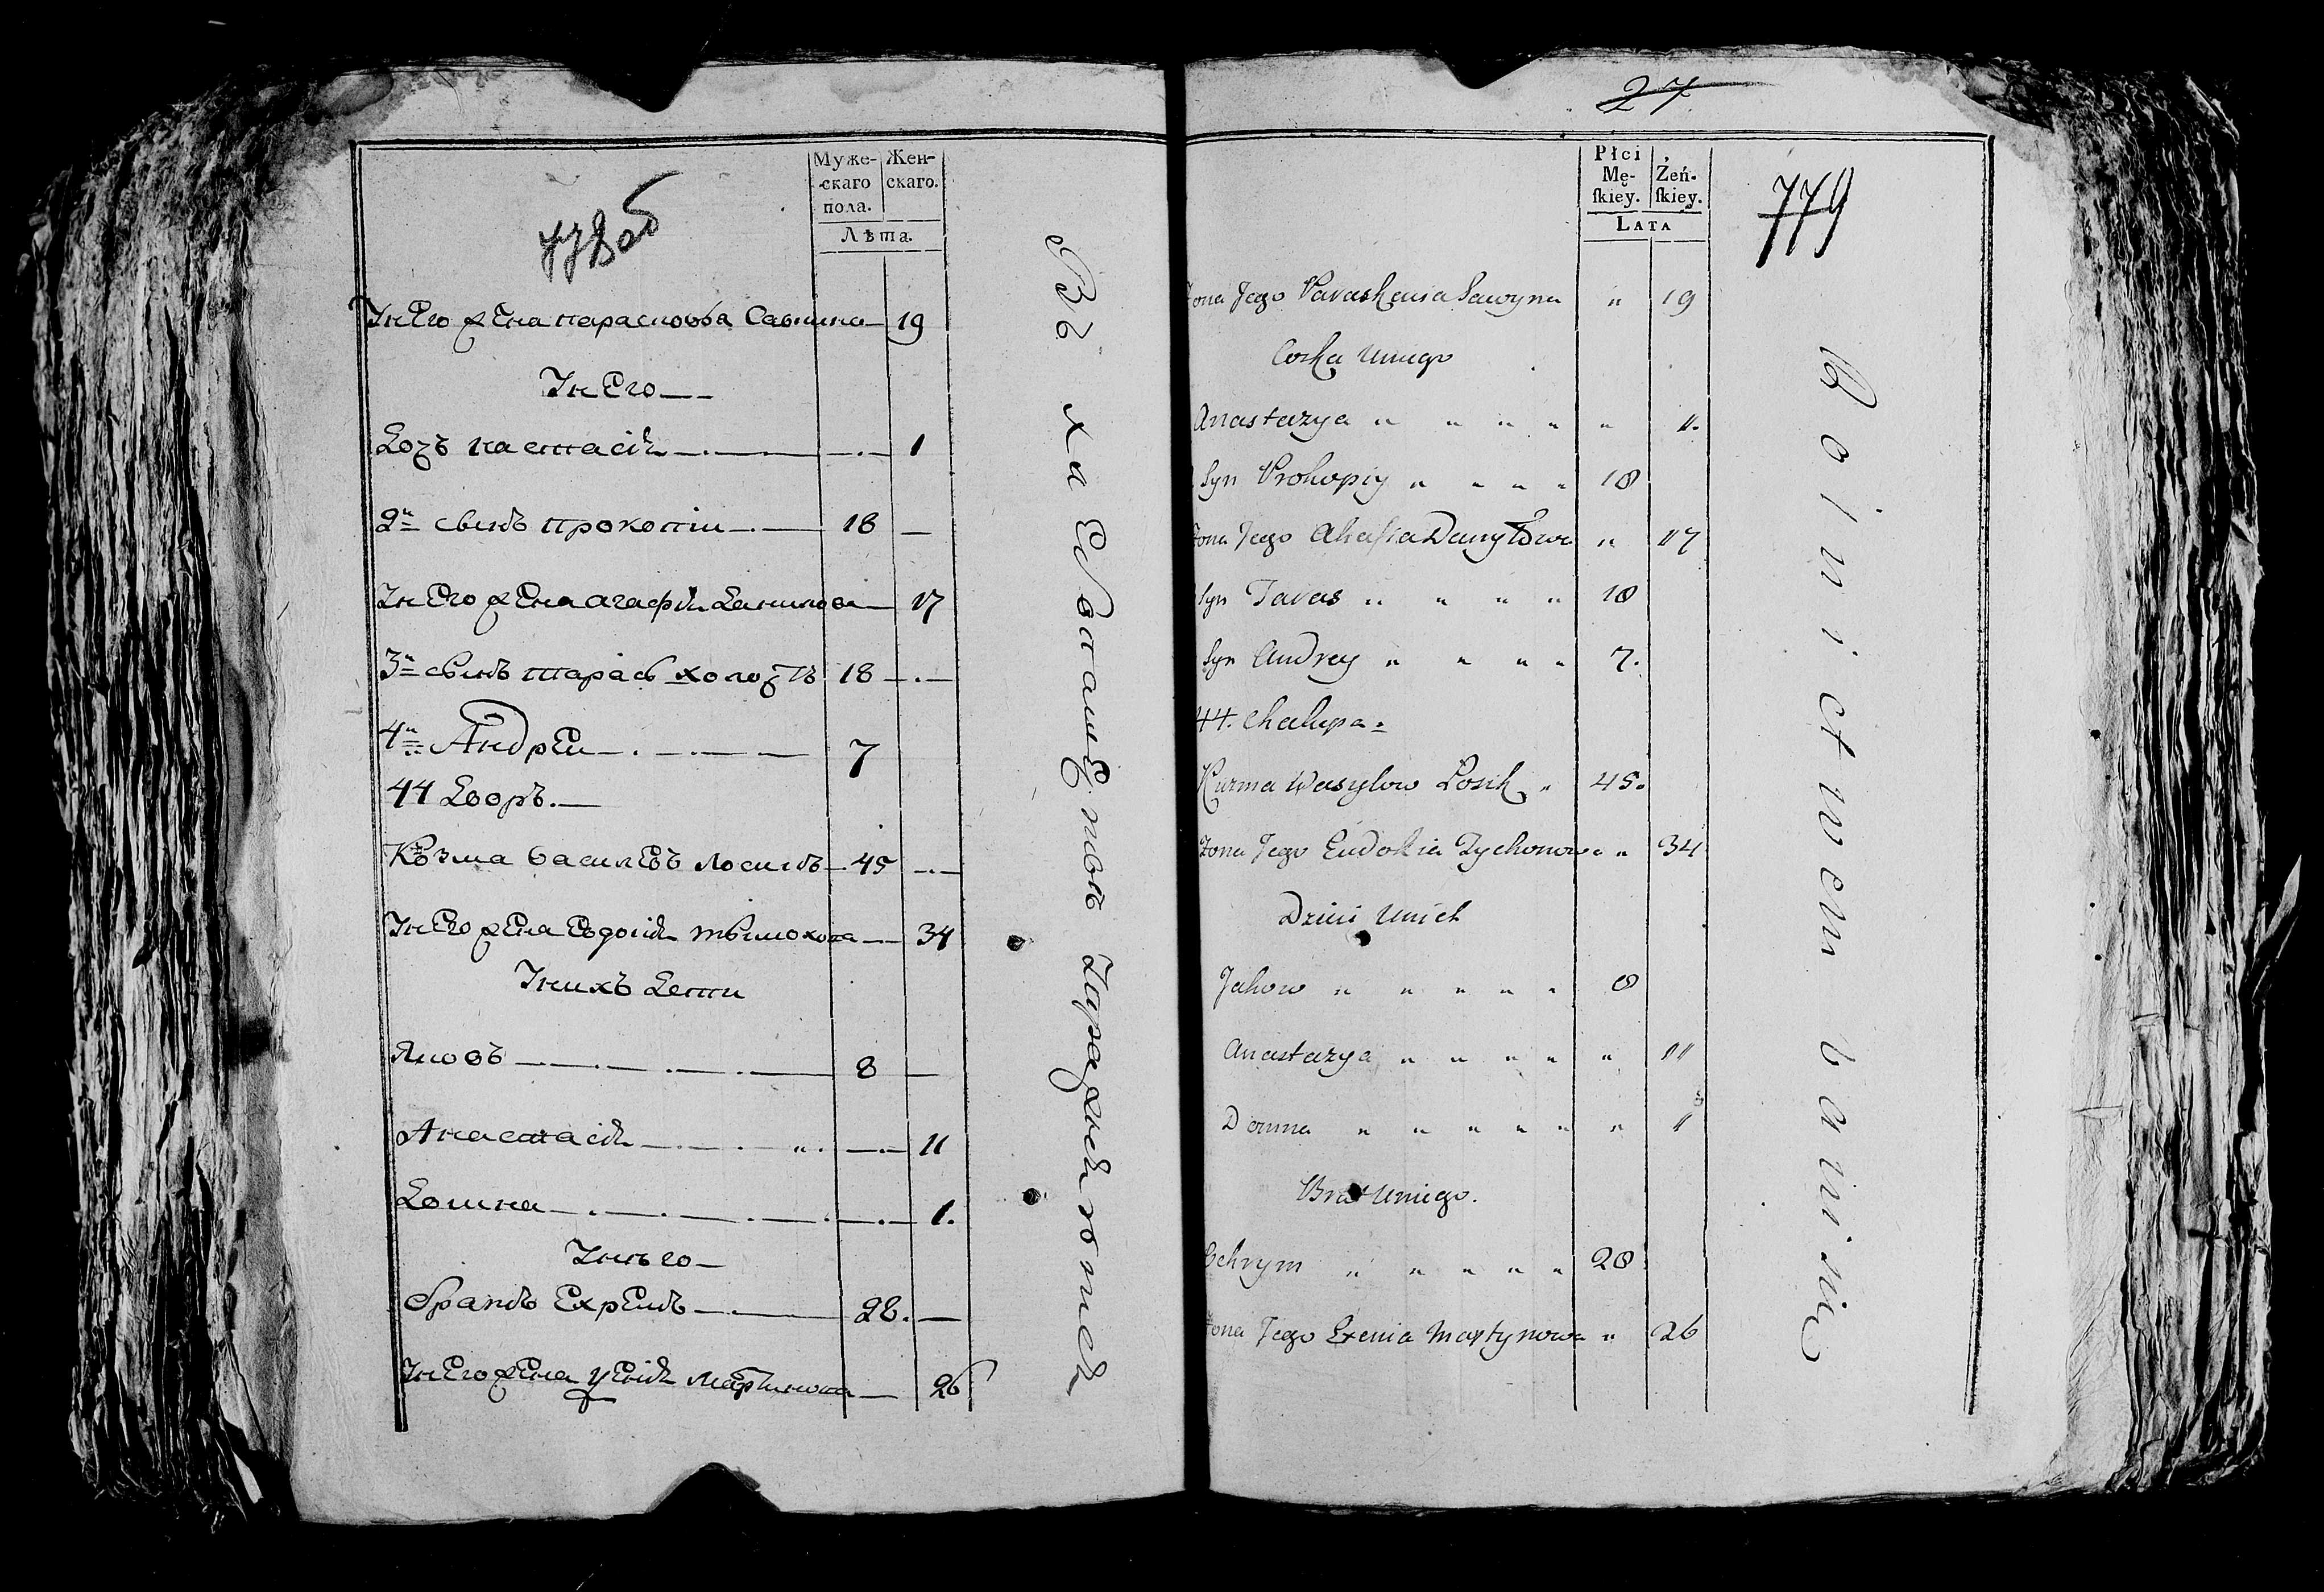 Муже-
скаго
пола.
Жен-
скаго.
Лѣта.
778об
Унего жена парасковѣа Савина 19
Унего
Дочъ настасія 1
2й сынъ прокопіи 18
Унего жена агафія данилова 17
3й сынъ тарасъ холостъ 18
4й Андреи 7
44 Дворъ.
Кузма василевъ лосикъ 45
Унего жена Евдокія 34
Унихъ дети
Яковъ 8
Анастасія 11
Домна 1.
Унего
братъ Ехремъ 28.
Унего жена мартинова 26
Въ
27
Płci
Mę-
ſkiey.
Żeń-
ſkiey.
Lata
779
Żona Jego Paraskewia Sawyna " 19
Corka Uniego
Anastazya " " " " " 1.
Syn Prokopiy " " " " 18
Żona Jego Ahafia Danyłowa " 17
Syn Taras " " " " 18
Syn Andrey " " " " 7.
44. Chałupa
Kuzma Wasylow Łosik " 45.
Żona Jego Eudokia Tychonowa " 34
Dzieci Unich
Jakow " " " " " 8
Anastazya " " " " " 11
Domna " " " " " " 1
Brat Uniego.
Ochrym " " " " " 28
Żona Jego Exenia Martynowa " 26